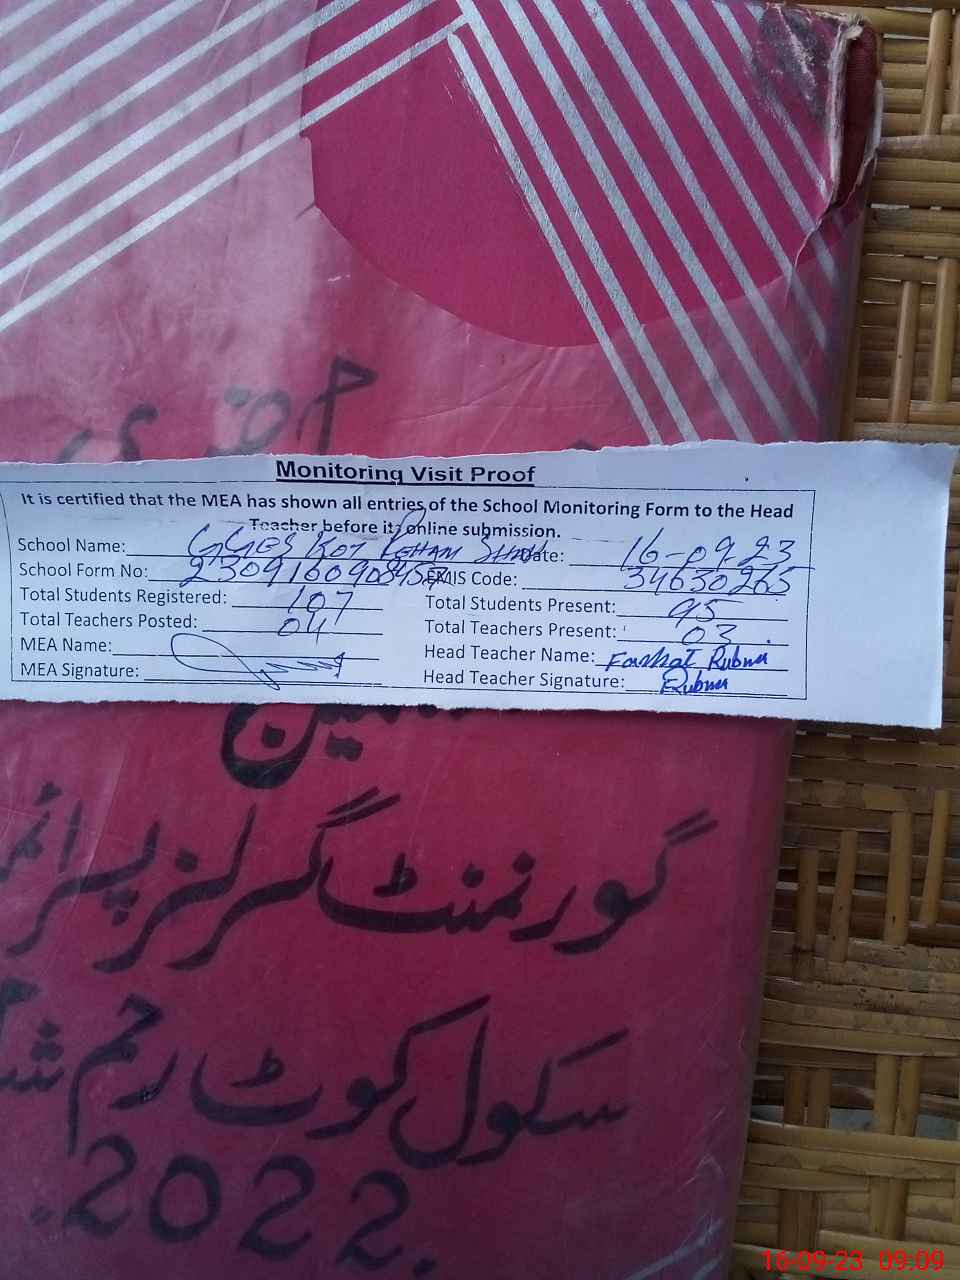 حاضری
Monitoring Visit Proof
It is certified that the MEA has shown all entries of the School Monitoring Form to the Head
Teacher before its online submission.
School Name: GGES KOT REHAM SHAH Date: 16-09-23
School Form No: EMIS Code: 34630265
Total Students Registered: 107 Total Students Present: 95
Total Teachers Posted: 04 Total Teachers Present: 03
MEA Name: Head Teacher Name: Farhat Rubina
MEA Signature: Head Teacher Signature: Rubina
گورنمنٹ گرلز پرائم
سکول کوٹ رحم ش
2022.
16-09-23 09:09